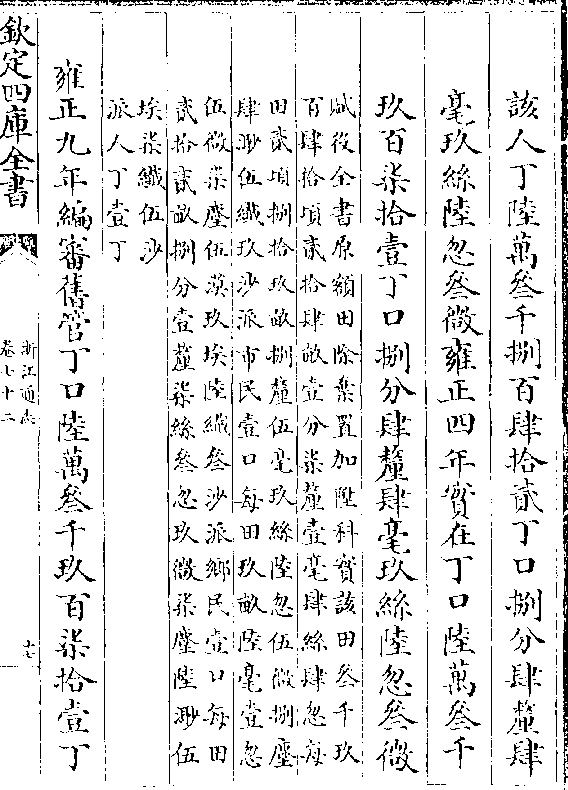 該人丁陸萬叁千捌百肆拾貳丁口捌分肆釐肆
毫玖絲陸忽叁微雍正四年實在丁口陸萬叁千
玖百柒拾壹丁口捌分肆釐肆毫玖絲陸忽叁微
賦役全書原額田除棄置加陞科實該田叁千玖
百肆拾頃貳拾肆畝壹分柒釐壹毫肆絲肆忽每
田貳頃捌拾玖畝捌釐伍毫玖絲陸忽伍微捌塵
肆渺伍纎玖沙派市民壹口每田玖畝陸毫壹忽
伍微柒塵伍漠玖埃陸纎叁沙派鄉民壹口每田
貳拾貳畝捌分壹釐柒絲叁忽玖微柒塵陸渺伍
埃柒纎伍沙
派人丁壹丁
雍正九年編審舊管丁口陸萬叁千玖百柒拾壹丁
欽定四庫全書
浙江通志
卷七十二
十七